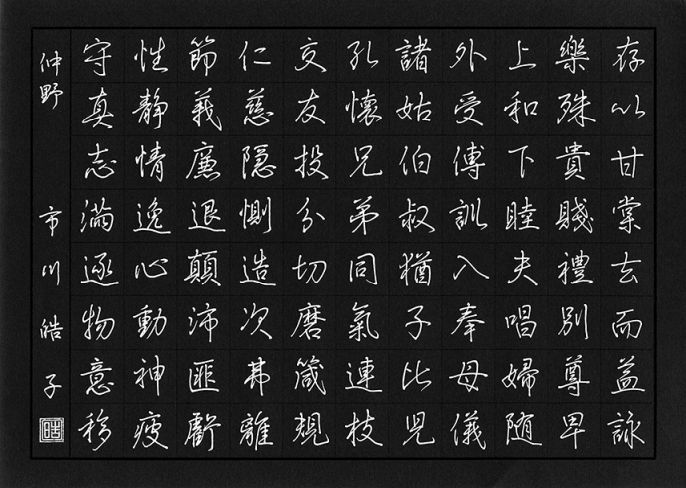 存以甘棠去而益詠
樂殊貴賤禮別尊卑
上和下睦夫唱婦随
外受傅訓入奉母儀
諸姑伯叔猶子比児
孔懐兄弟同氣連枝
交友投分切磨箴規
仁慈隠惻造次弗離
節義廉退顛沛匪虧
性静情逸心動神疲
守真志満逐物意移
仲野 市川皓子